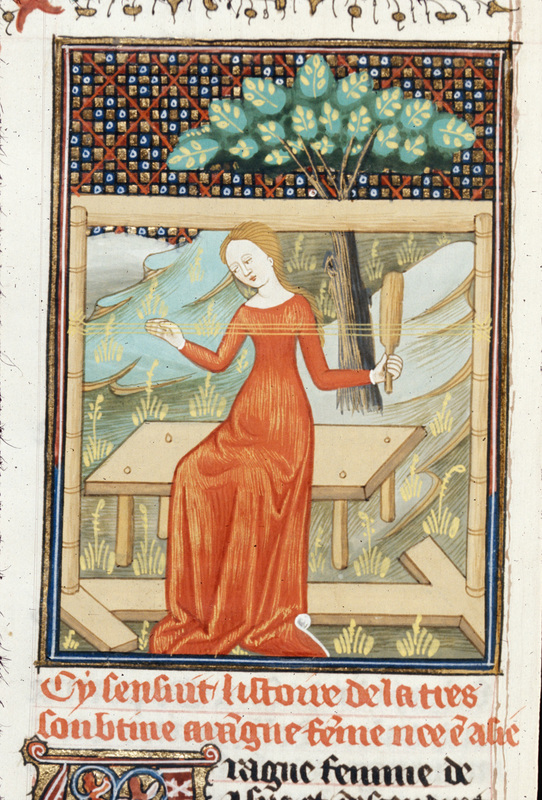 Cy sensuit listoire de la tres
soubtiue araigne fẽme nee ẽ asie
ragne femme de